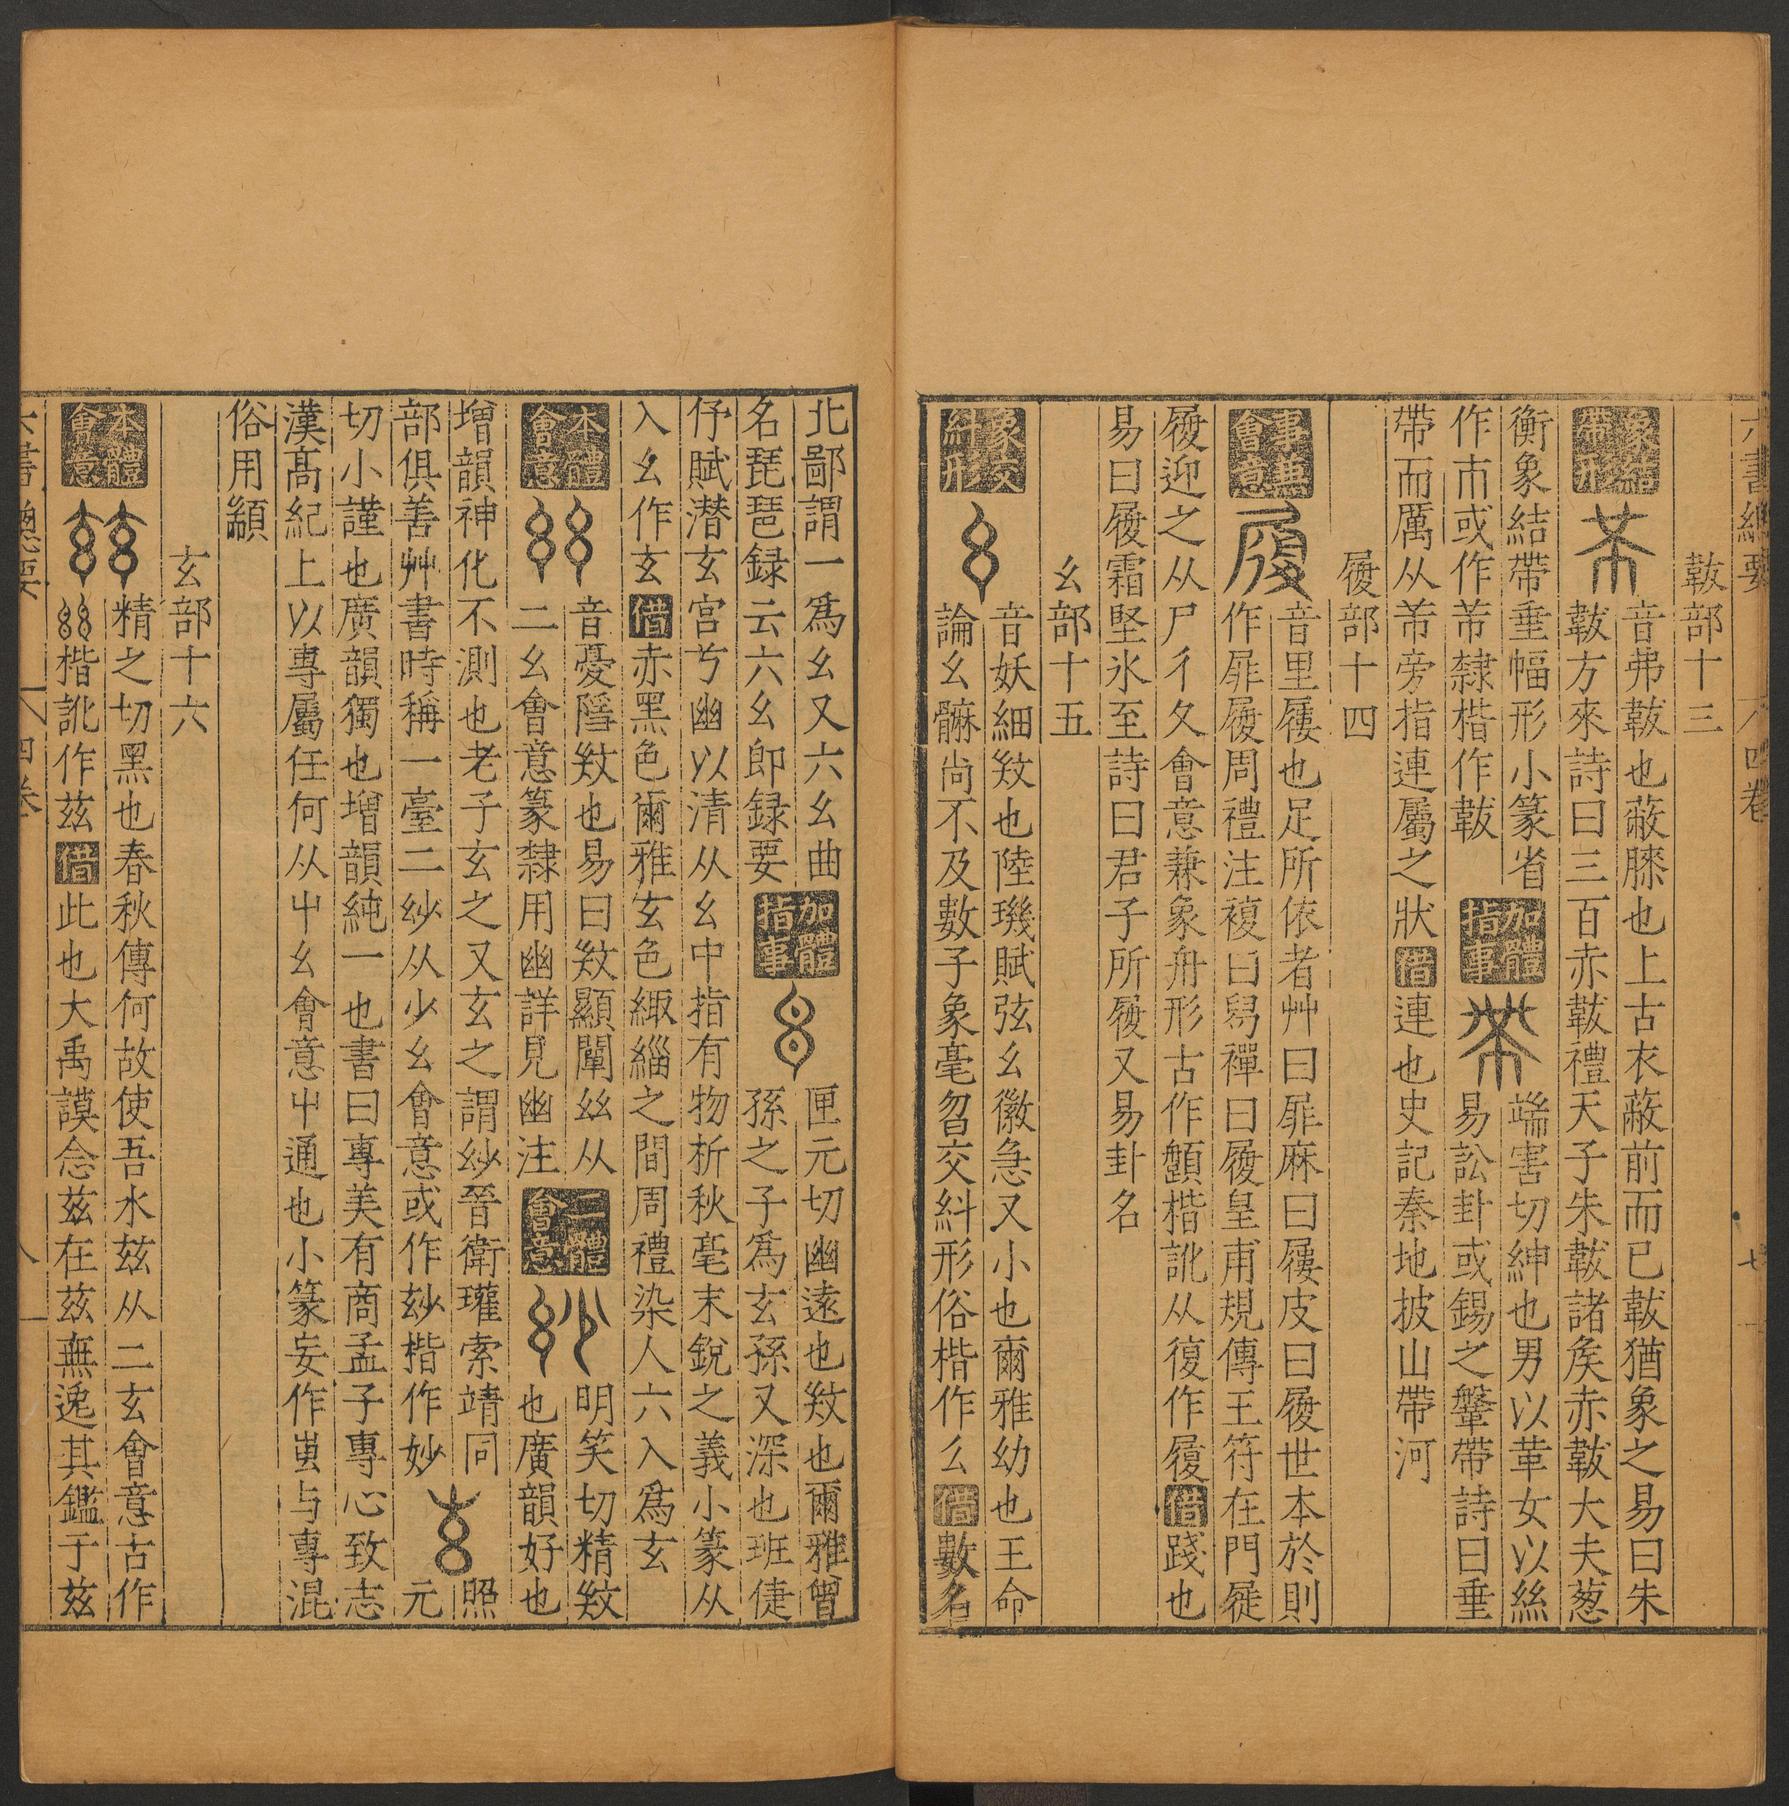 六書總要 四卷 七
韍部十三
象結帶形 音弗韍也蔽膝也上古衣蔽前而已韍猶象之易曰朱
韍方來詩曰三百赤韍禮天子朱韍諸矦赤韍大夫葱
衡象結帶垂幅形小篆省 加體指事 端害切紳也男以革女以絲
作巿或作芾隸楷作韍 易訟卦或錫之鞶帶詩曰垂
帶而厲从芾旁指連屬之狀 借 連也史記秦地披山帶河
履部十四
事兼會意 音里屨也足所依者艸曰屝麻曰屨皮曰履世本於則
作屝履周禮注複曰舄禪曰履皇甫規傳王符在門屣
履迎之从尸彳夂會意兼象舟形古作𩕎楷訛从復作履 借 踐也
易曰履霜堅氷至詩曰君子所履又易卦名
幺部十五
象交糾形 音妖細㪏也陸璣賦弦幺徽急又小也爾雅幼也王命
論幺髍尚不及數子象毫曶交糾形俗楷作么 借 數名
北鄙謂一爲幺又六幺曲 加體指事 匣元切幽遠也㪏也爾雅曾
名琵琶録云六幺即録要 孫之子爲玄孫又深也班倢
伃賦潛玄宮兮幽以清从幺中指有物析秋毫末銳之義小篆从
入幺作玄 借 赤黑色爾雅玄色緅緇之間周禮染人六入爲玄
本體會意 音憂隱㪏也易曰㪏顯闡𢆶从 二體會意 明笑切精㪏
二幺會意篆隸用幽詳見幽注 也廣韻好也
增韻神化不測也老子玄之又玄之謂玅晉衛瓘索靖同 照
部俱善艸書時稱一臺二玅从少幺會意或作玅楷作妙 元
切小謹也廣韻獨也增韻純一也書曰專美有商孟子專心致志
漢高紀上以專屬任何从屮幺會意屮通也小篆妄作叀与專混
俗用顓
玄部十六
本體會意 精之切黑也春秋傳何故使吾水茲从二玄會意古作
楷訛作茲 借 此也大禹謨念茲在茲無逸其鑑于茲
六書總要 四卷 八